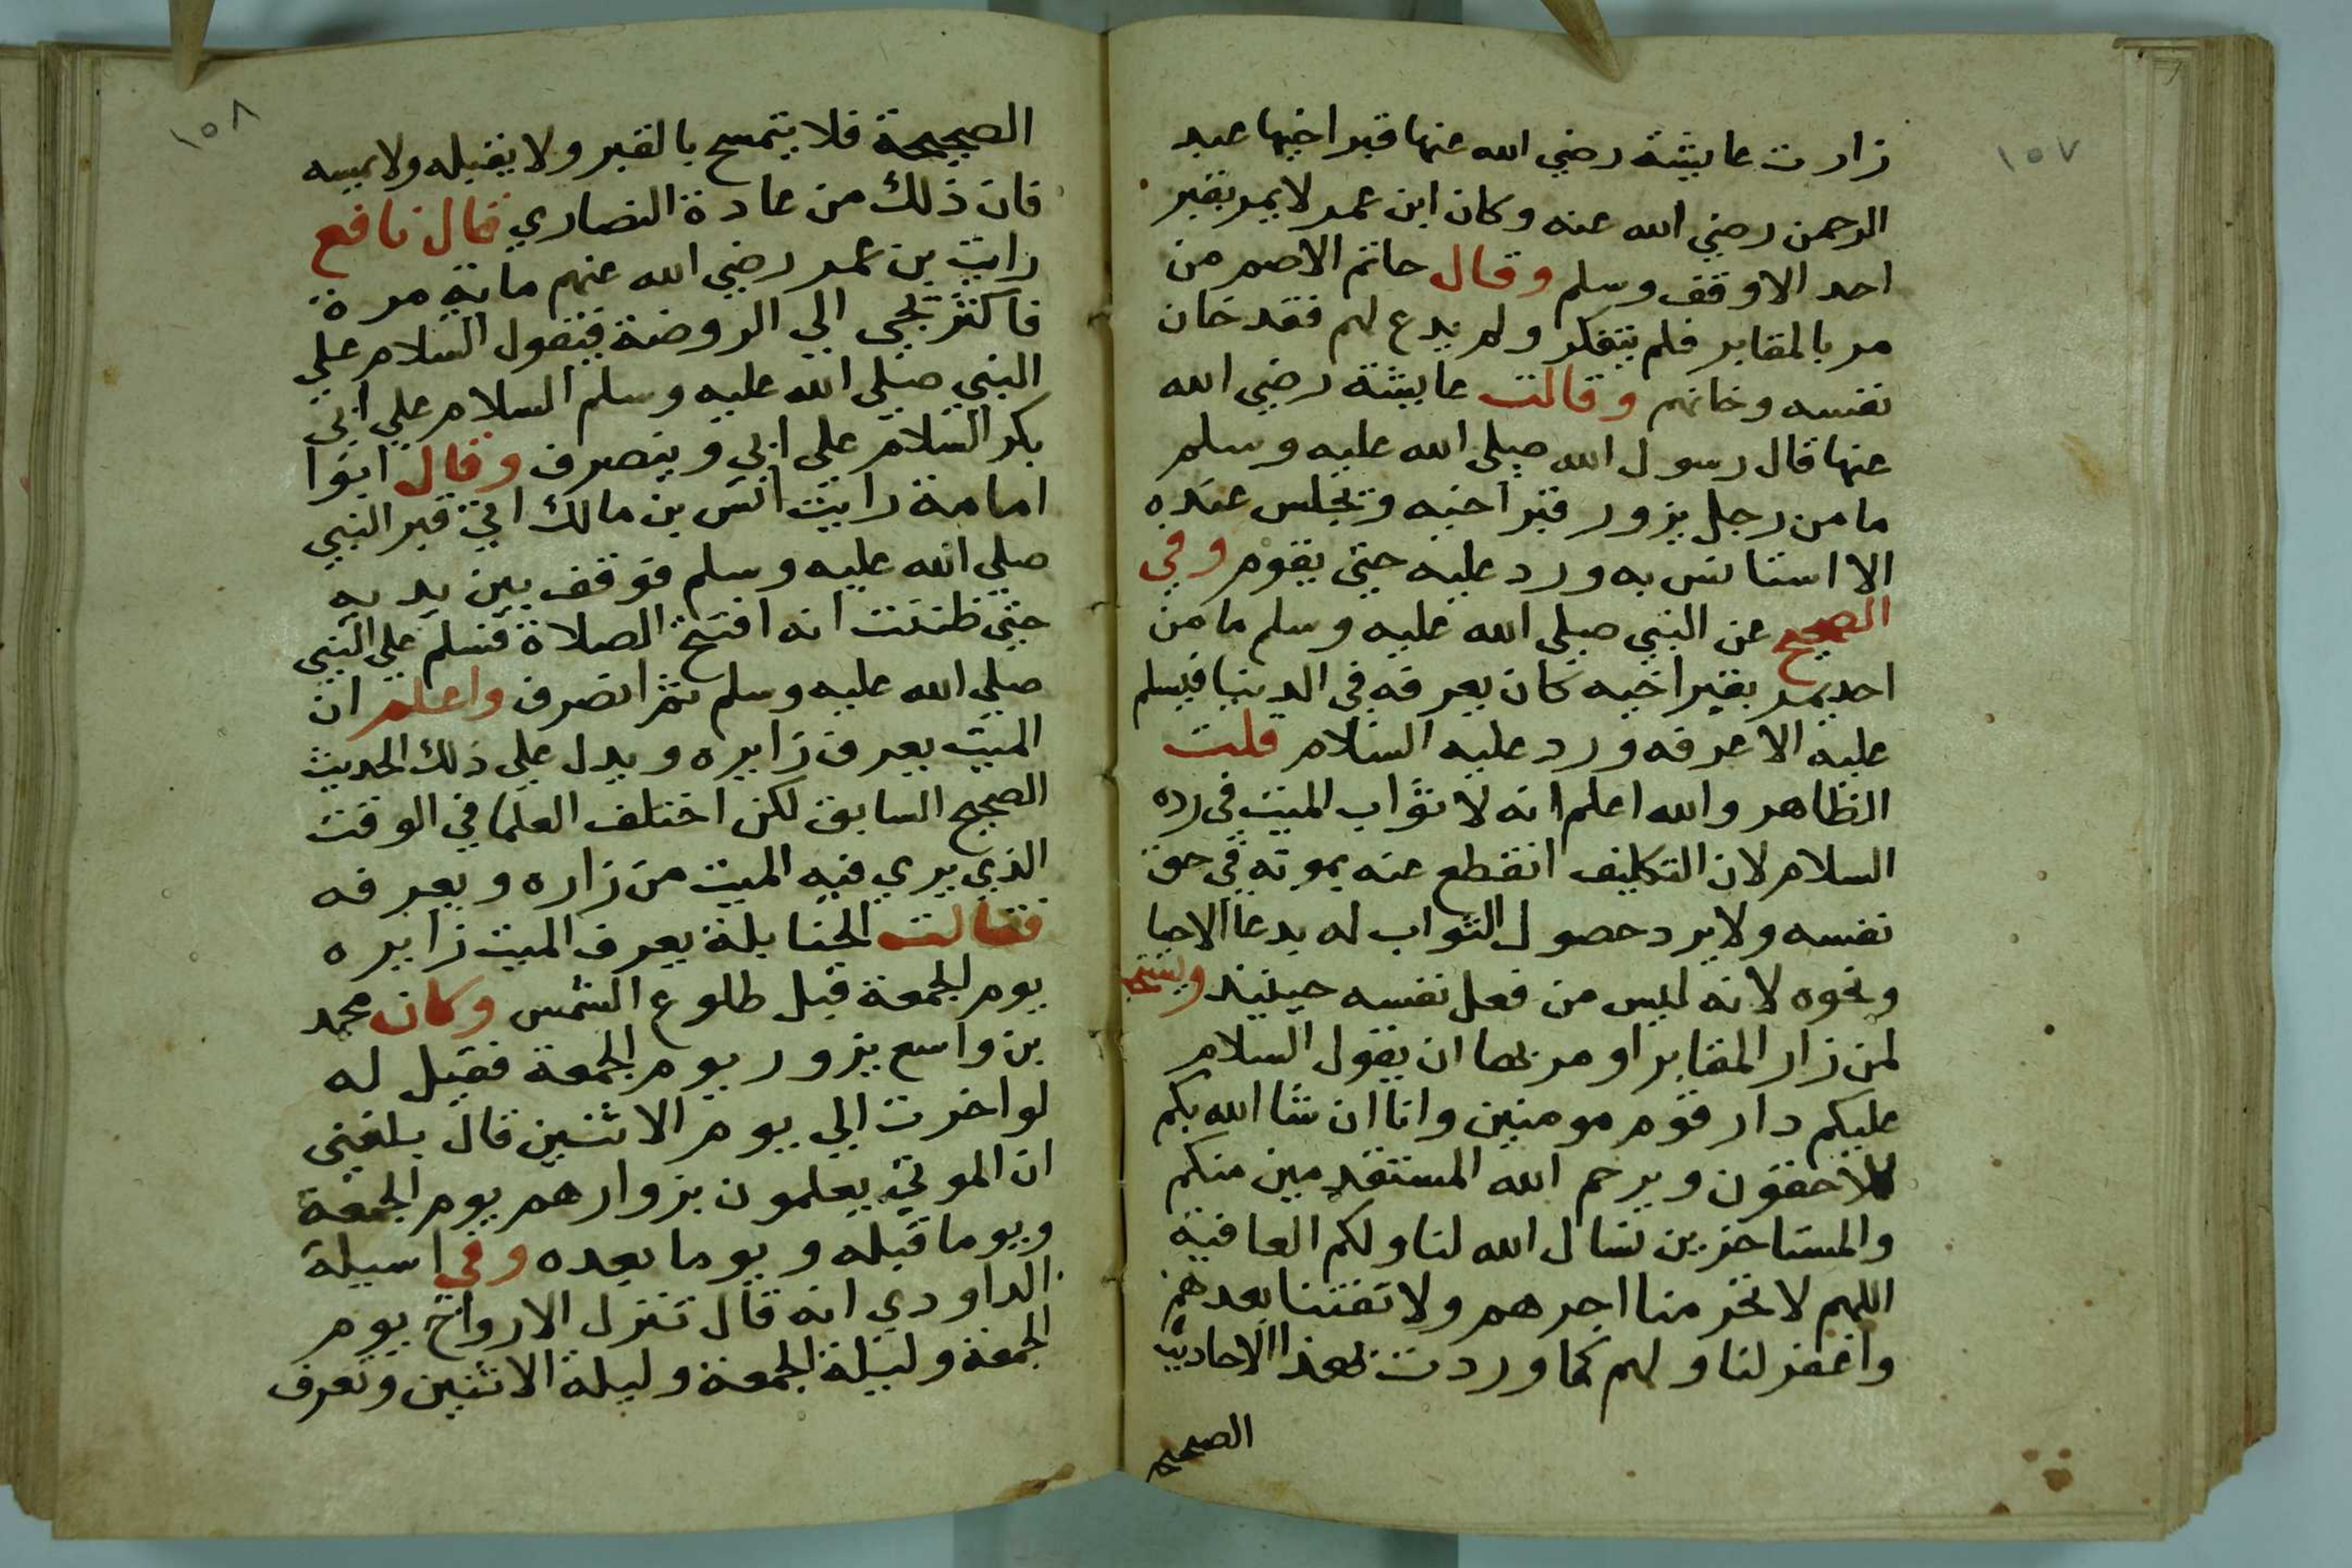 ١٥٧
زارت عايشة رضي الله عنها قبر اخيها عبد
الرحمن رضي الله عنه وكان ابن عمر لا يمر بقبر
احد الا وقف وسلم وقال حاتم الاصم من
مر بالمقابر فلم يتفكر ولم يدع لهم فقد خان
نفسه وخانهم وقالت عايشة رضي الله
عنها قال رسول الله صلى الله عليه وسلم
ما من رجل يزور قبر اخيه ويجلس عنده
الا استانس به ورد عليه حتى يقوم وفي
الصحيح عن النبي صلى الله عليه وسلم ما من
احد يمر بقبر اخيه كان يعرفه في الدنيا فيسلم
عليه الا عرفه ورد عليه السلام قلت
الظاهر والله اعلم انه لا ثواب للميت في رده
السلام لان التكليف انقطع عنه بموته في حق
نفسه ولا يرد حصول الثواب له بدعا الاحيا
ونحوه لانه ليس من فعل نفسه حينيذ ويستحب
لمن زار المقابر او مر بها ان يقول السلام
عليكم دار قوم مومنين وانا ان شا الله بكم
للاحقون ويرحم الله المستقدمين منكم
والمستاخرين نسال الله لنا ولكم العافية
اللهم لا تحرمنا اجرهم ولا تفتنا بعدهم
واغفر لنا ولهم كما وردت بهذا الاحاديث
الصحيح
١٥٨
الصحيحة فلا يتمسح بالقبر ولا يقبله ولا يمسه
فان ذلك من عادة النصاري فقال نافع
رايت بن عمر رضي الله عنهم ماية مرة
فاكثر يجي الي الروضة فيقول السلام علي
النبي صلي الله عليه وسلم السلام علي ابي
بكر السلام علي ابي وينصرف وقال ابوا
امامة رايت انس بن مالك اتي قبر النبي
صلي الله عليه وسلم فوقف بين يديه
حتي ظننت انه افتتح الصلاة فسلم علي النبي
صلي الله عليه وسلم ثم انصرف واعلم ان
الميت يعرف زايره ويدل علي ذلك الحديث
الصحيح السابق لكن اختلف العلما في الوقت
الذي يري فيه الميت من زاره ويعرفه
فقالت الحنابلة يعرف الميت زايره
يوم الجمعة قبل طلوع الشمس وكان محمد
بن واسع يزور يوم الجمعة فقيل له
لو اخرت الي يوم الاثنين قال بلغني
ان الموتي يعلمون بزوارهم يوم الجمعة
ويوما قبله ويوما بعده وفي اسيلة
الداودي انه قال تنزل الارواح يوم
الجمعة وليلة الجمعة وليلة الاثنين وتعرف